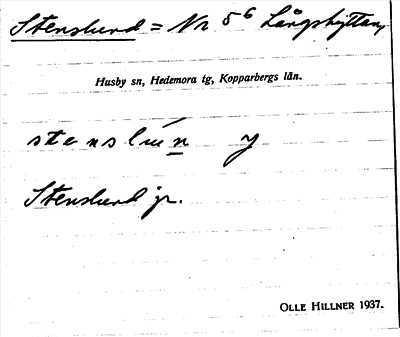 Stenslund = Nr 5⁶ Långshyttan,
Husby sn, Hedemora tg, Kopparbergs län.
Stenslund gr.
OLLE HILLNER 1937.